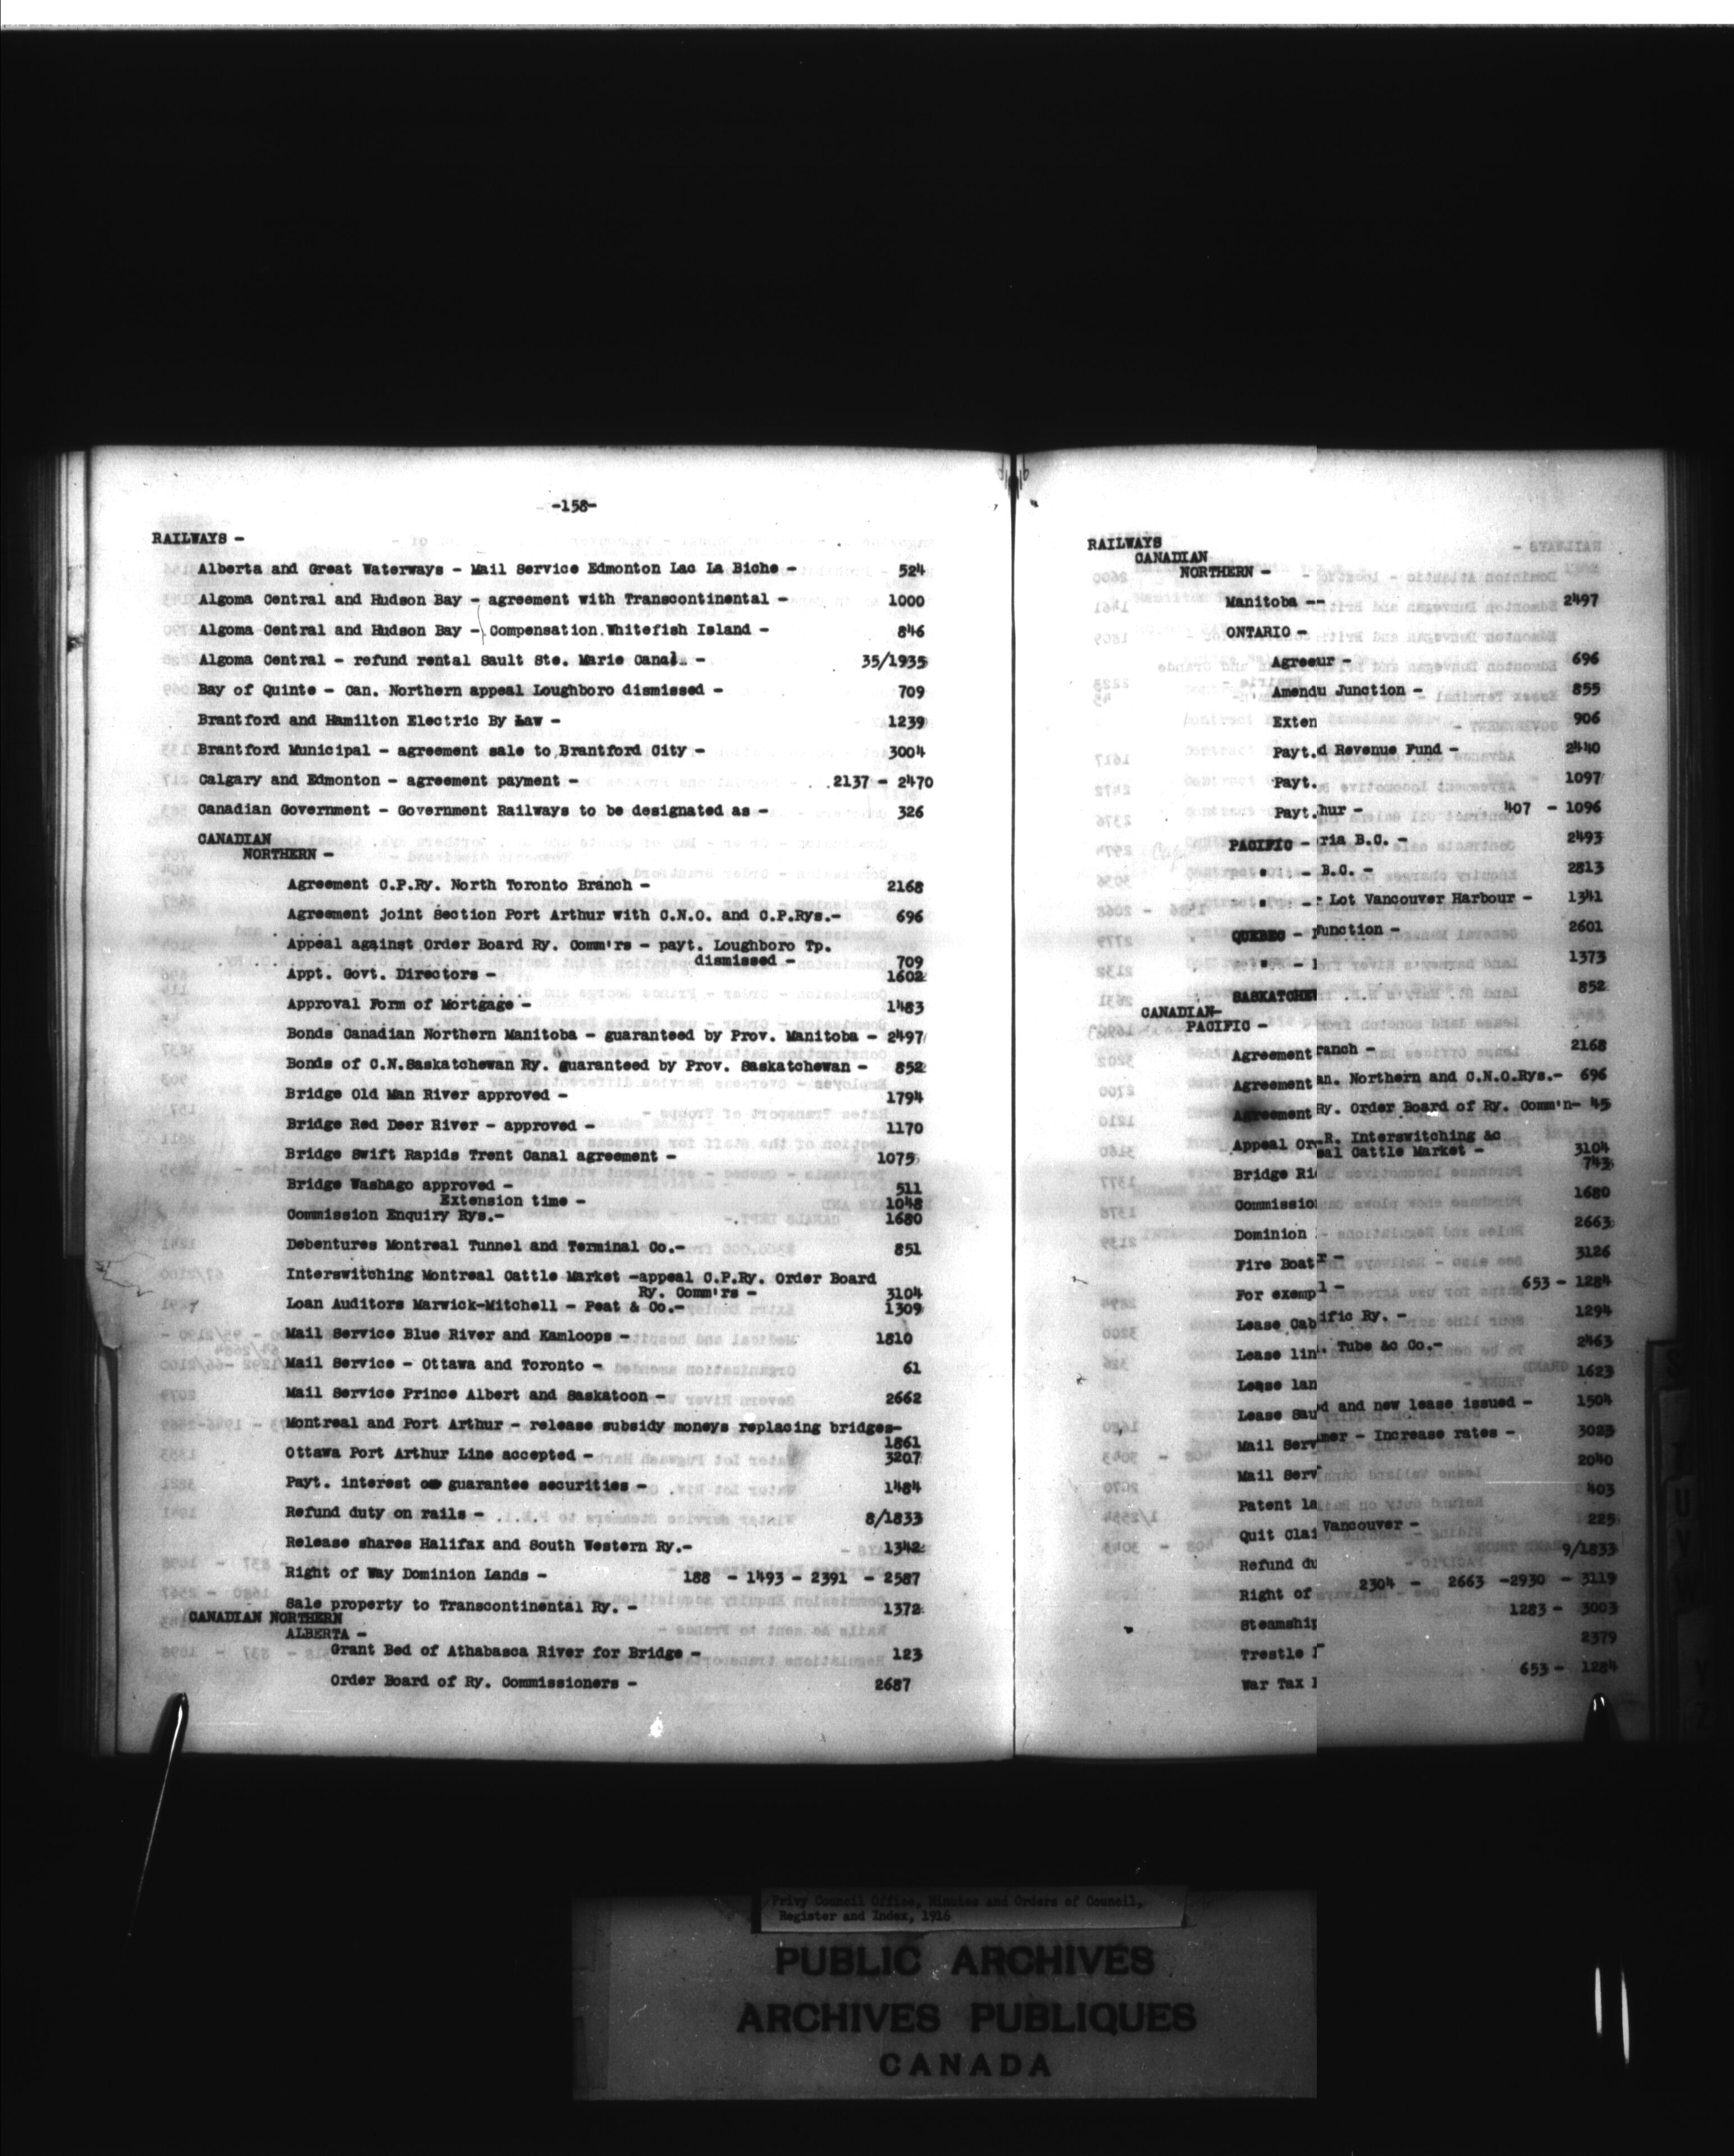 -158-
RAILWAYS -
Alberta and Great Waterways - Mail Service Edmonton Lac La Biche - 524
Algoma Central and Hudson Bay - agreement with Transcontinental - 1000
Algoma Central and Hudson Bay - Compensation Whitefish Island - 846
Algoma Central - refund rental Sault Ste. Marie Canal - 35/1935
Bay of Quinte - Can. Northern appeal Loughboro dismissed - 709
Brantford and Hamilton Electric By Law - 1239
Brantford Municipal - agreement sale to Brantford City - 3004
Calgary and Edmonton - agreement payment - 2137 - 2470
Canadian Government - Government Railways to be designated as - 326
CANADIAN
NORTHERN -
Agreement C.P.Ry. North Toronto Branch - 2168
Agreement joint Section Port Arthur with C.N.O. and C.P.Rys.- 696
Appeal against Order Board Ry. Comm'rs - payt. Loughboro Tp.
dismissed - 709
Appt. Govt. Directors - 1602
Approval Form of Mortgage - 1483
Bonds Canadian Northern Manitoba - guaranteed by Prov. Manitoba - 2497
Bonds of C.N.Saskatchewan Ry. guaranteed by Prov. Saskatchewan - 852
Bridge Old Man River approved - 1794
Bridge Red Deer River - approved - 1170
Bridge Swift Rapids Trent Canal agreement - 1075
Bridge Washago approved - 511
Extension time - 1048
Commission Enquiry Rys.- 1680
Debentures Montreal Tunnel and Terminal Co.- 851
Interswitching Montreal Cattle Market -appeal C.P.Ry. Order Board
Ry. Comm'rs - 3104
Loan Auditors Marwick-Mitchell - Peat & Co.- 1309
Mail Service Blue River and Kamloops - 1810
Mail Service - Ottawa and Toronto - 61
Mail Service Prince Albert and Saskatoon - 2662
Montreal and Port Arthur - release subsidy moneys replacing bridges-
1861
Ottawa Port Arthur Line accepted - 3207
Payt. interest guarantee securities - 1484
Refund duty on rails - 8/1833
Release shares Halifax and South Western Ry.- 1342
Right of Way Dominion Lands - 188 - 1493 - 2391 - 2587
Sale property to Transcontinental Ry. - 1372
CANADIAN NORTHERN
ALBERTA -
Grant Bed of Athabasca River for Bridge - 123
Order Board of Ry. Commissioners - 2687
RAILWAYS
CANADIAN
NORTHERN -
Manitoba -- 2497
ONTARIO -
Agreeur - 696
Amendu Junction - 855
Exten 906
Payt.d Revenue Fund - 2440
Payt. 1097
Payt.hur - 407 - 1096
PACIFIC - ria B.C. - 2493
" - B.C. - 2813
" - Lot Vancouver Harbour - 1341
QUEBEC - unction - 2601
" - 1373
SASKATCHEW 852
CANADIAN-
PACIFIC -
Agreement ranch - 2168
Agreement an. Northern and C.N.O.Rys.- 696
Agreement Ry. Order Board of Ry. Comm'n- 45
Appeal Or R. Interswitching &c
eal Cattle Market - 3104
Bridge Ri 743
Commissio 1680
Dominion 2663
Fire Boat - 3126
For exemp l - 653 - 1284
Lease Cab ific Ry. - 1294
Lease lin . Tube &c Co.- 2463
Lease lan 1623
Lease Sau d and new lease issued - 1504
Mail Serv mer - Increase rates - 3023
Mail Serv 2040
Patent la 403
Quit Clai Vancouver - 225
Refund du 9/1833
Right of 2304 - 2663 -2930 - 3119
Steamship 1283 - 3003
Trestle 2379
War Tax 653 - 1284
Privy Council Office, Minutes and Orders of Council,
Register and Index, 1916
PUBLIC ARCHIVES
ARCHIVES PUBLIQUES
CANADA